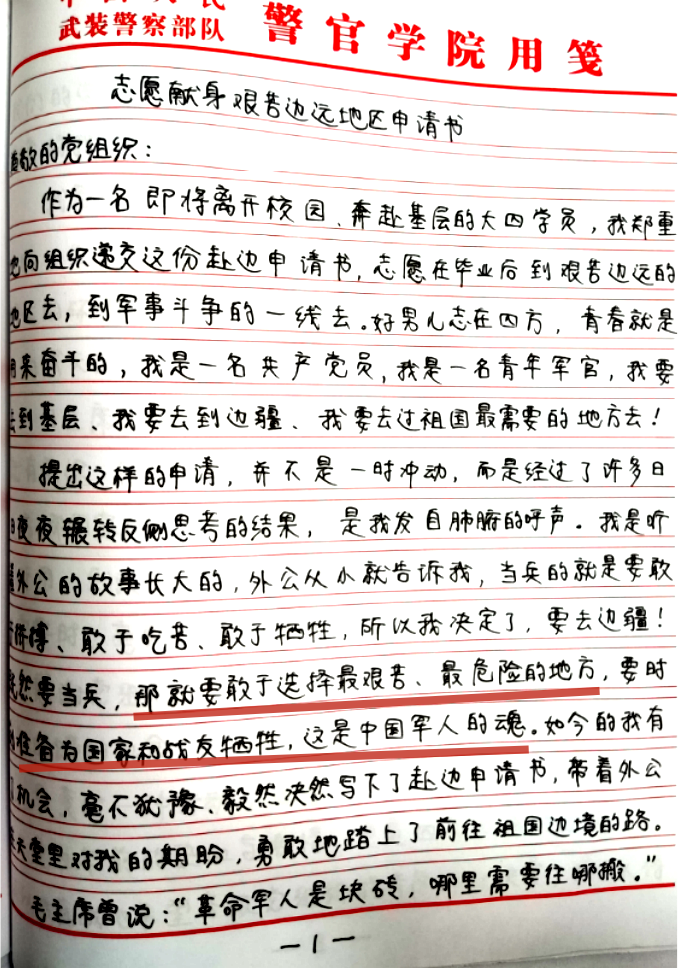 武装警察部队 警官学院用笺
志愿献身艰苦边远地区申请书
敬的党组织：
作为一名即将离开校园、奔赴基层的大四学员，我郑重
地向组织递交这份赴边申请书，志愿在毕业后到艰苦边远的
地区去，到军事斗争的一线去。好男儿志在四方，青春就是
用来奋斗的，我是一名共产党员，我是一名青年军官，我要
去到基层、我要去到边疆、我要去过祖国最需要的地方去！
提出这样的申请，并不是一时冲动，而是经过了许多日
日夜夜辗转反侧思考的结果，是我发自肺腑的呼声。我是听
着外公的故事长大的，外公从小就告诉我，当兵的就是要敢
于拼搏、敢于吃苦、敢于牺牲，所以我决定了，要去边疆！
既然要当兵，那就要敢于选择最艰苦、最危险的地方，要时
刻准备为国家和战友牺牲，这是中国军人的魂。如今的我有
机会，毫不犹豫、毅然决然写下了赴边申请书，带着外公
在天堂里对我的期盼，勇敢地踏上了前往祖国边境的路。
毛主席曾说：“革命军人是块砖，哪里需要往哪搬。”
—1—